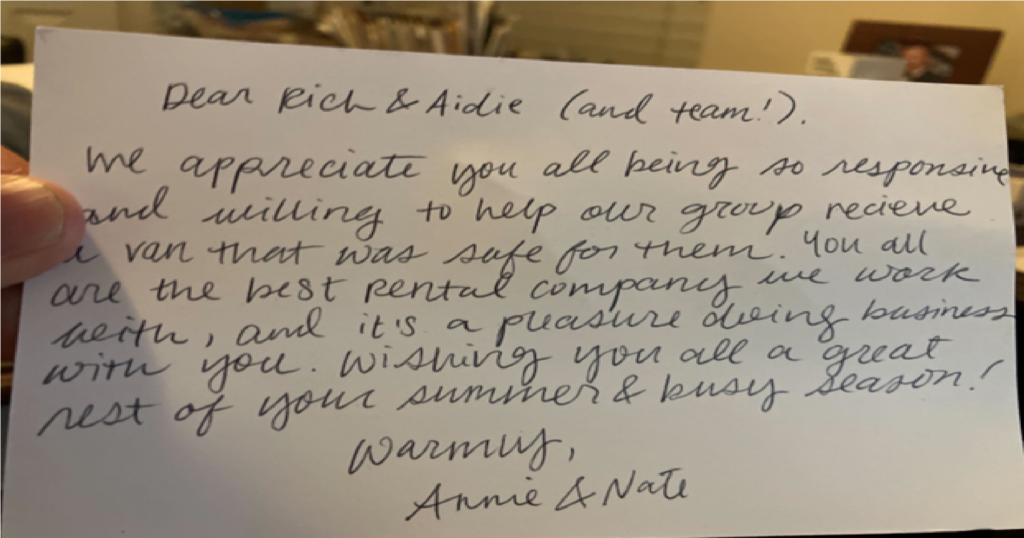 Dear Rich & Aidie (and team!).
We appreciate you all being so responsive
and willing to help our group recieve
a van that was safe for them. You all
are the best rental company we work
with, and it's a pleasure doing business
with you. Wishing you all a great
rest of your summer & busy season!
Warmly,
Annie & Nate